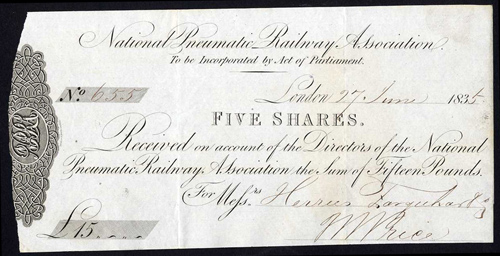 National Pneumatic Railway Association.
To be Incorporated by Act of Parliament.
No. 655
London 27 June 1835
FIVE SHARES.
Received on account of the Directors of the National
Pneumatic Railway Association the Sum of Fifteen Pounds.
For Messrs Herries Farquhar & Co
£15